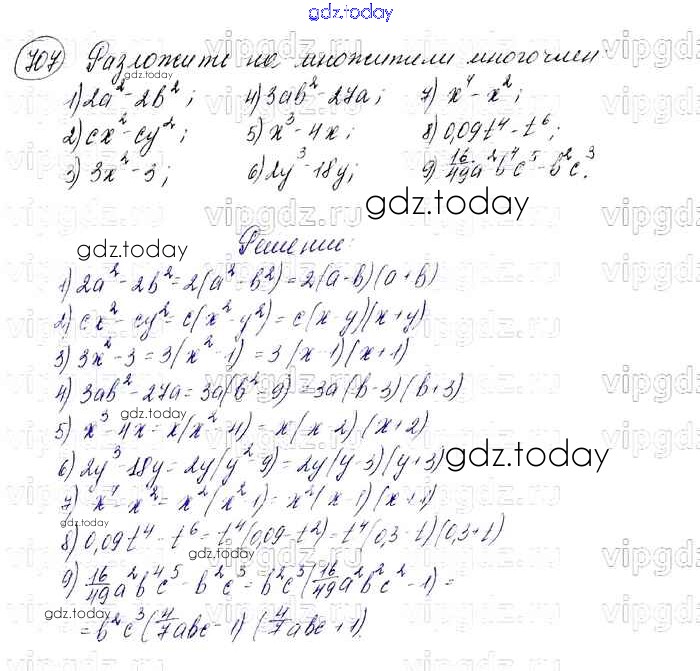 gdz.today
707 Разложите на множители многочлен
1) 2a² - 2b²; 4) 3ab² - 27a; 7) x⁴ - x²;
2) cx² - cy²; 5) x³ - 4x; 8) 0,09t⁴ - t⁶;
3) 3x² - 3; 6) 2y³ - 18y; 9) 16/49 a²b⁴c⁵ - b²c³.
gdz.today
Решение:
1) 2a² - 2b² = 2(a² - b²) = 2(a - b)(a + b)
2) cx² - cy² = c(x² - y²) = c(x - y)(x + y)
3) 3x² - 3 = 3(x² - 1) = 3(x - 1)(x + 1)
4) 3ab² - 27a = 3a(b² - 9) = 3a(b - 3)(b + 3)
5) x³ - 4x = x(x² - 4) = x(x - 2)(x + 2)
6) 2y³ - 18y = 2y(y² - 9) = 2y(y - 3)(y + 3)
7) x⁴ - x² = x²(x² - 1) = x²(x - 1)(x + 1)
8) 0,09t⁴ - t⁶ = t⁴(0,09 - t²) = t⁴(0,3 - t)(0,3 + t)
9) 16/49 a²b⁴c⁵ - b²c³ = b²c³(16/49 a²b²c² - 1) =
= b²c³(4/7 abc - 1)(4/7 abc + 1).
gdz.today
vipgdz.ru